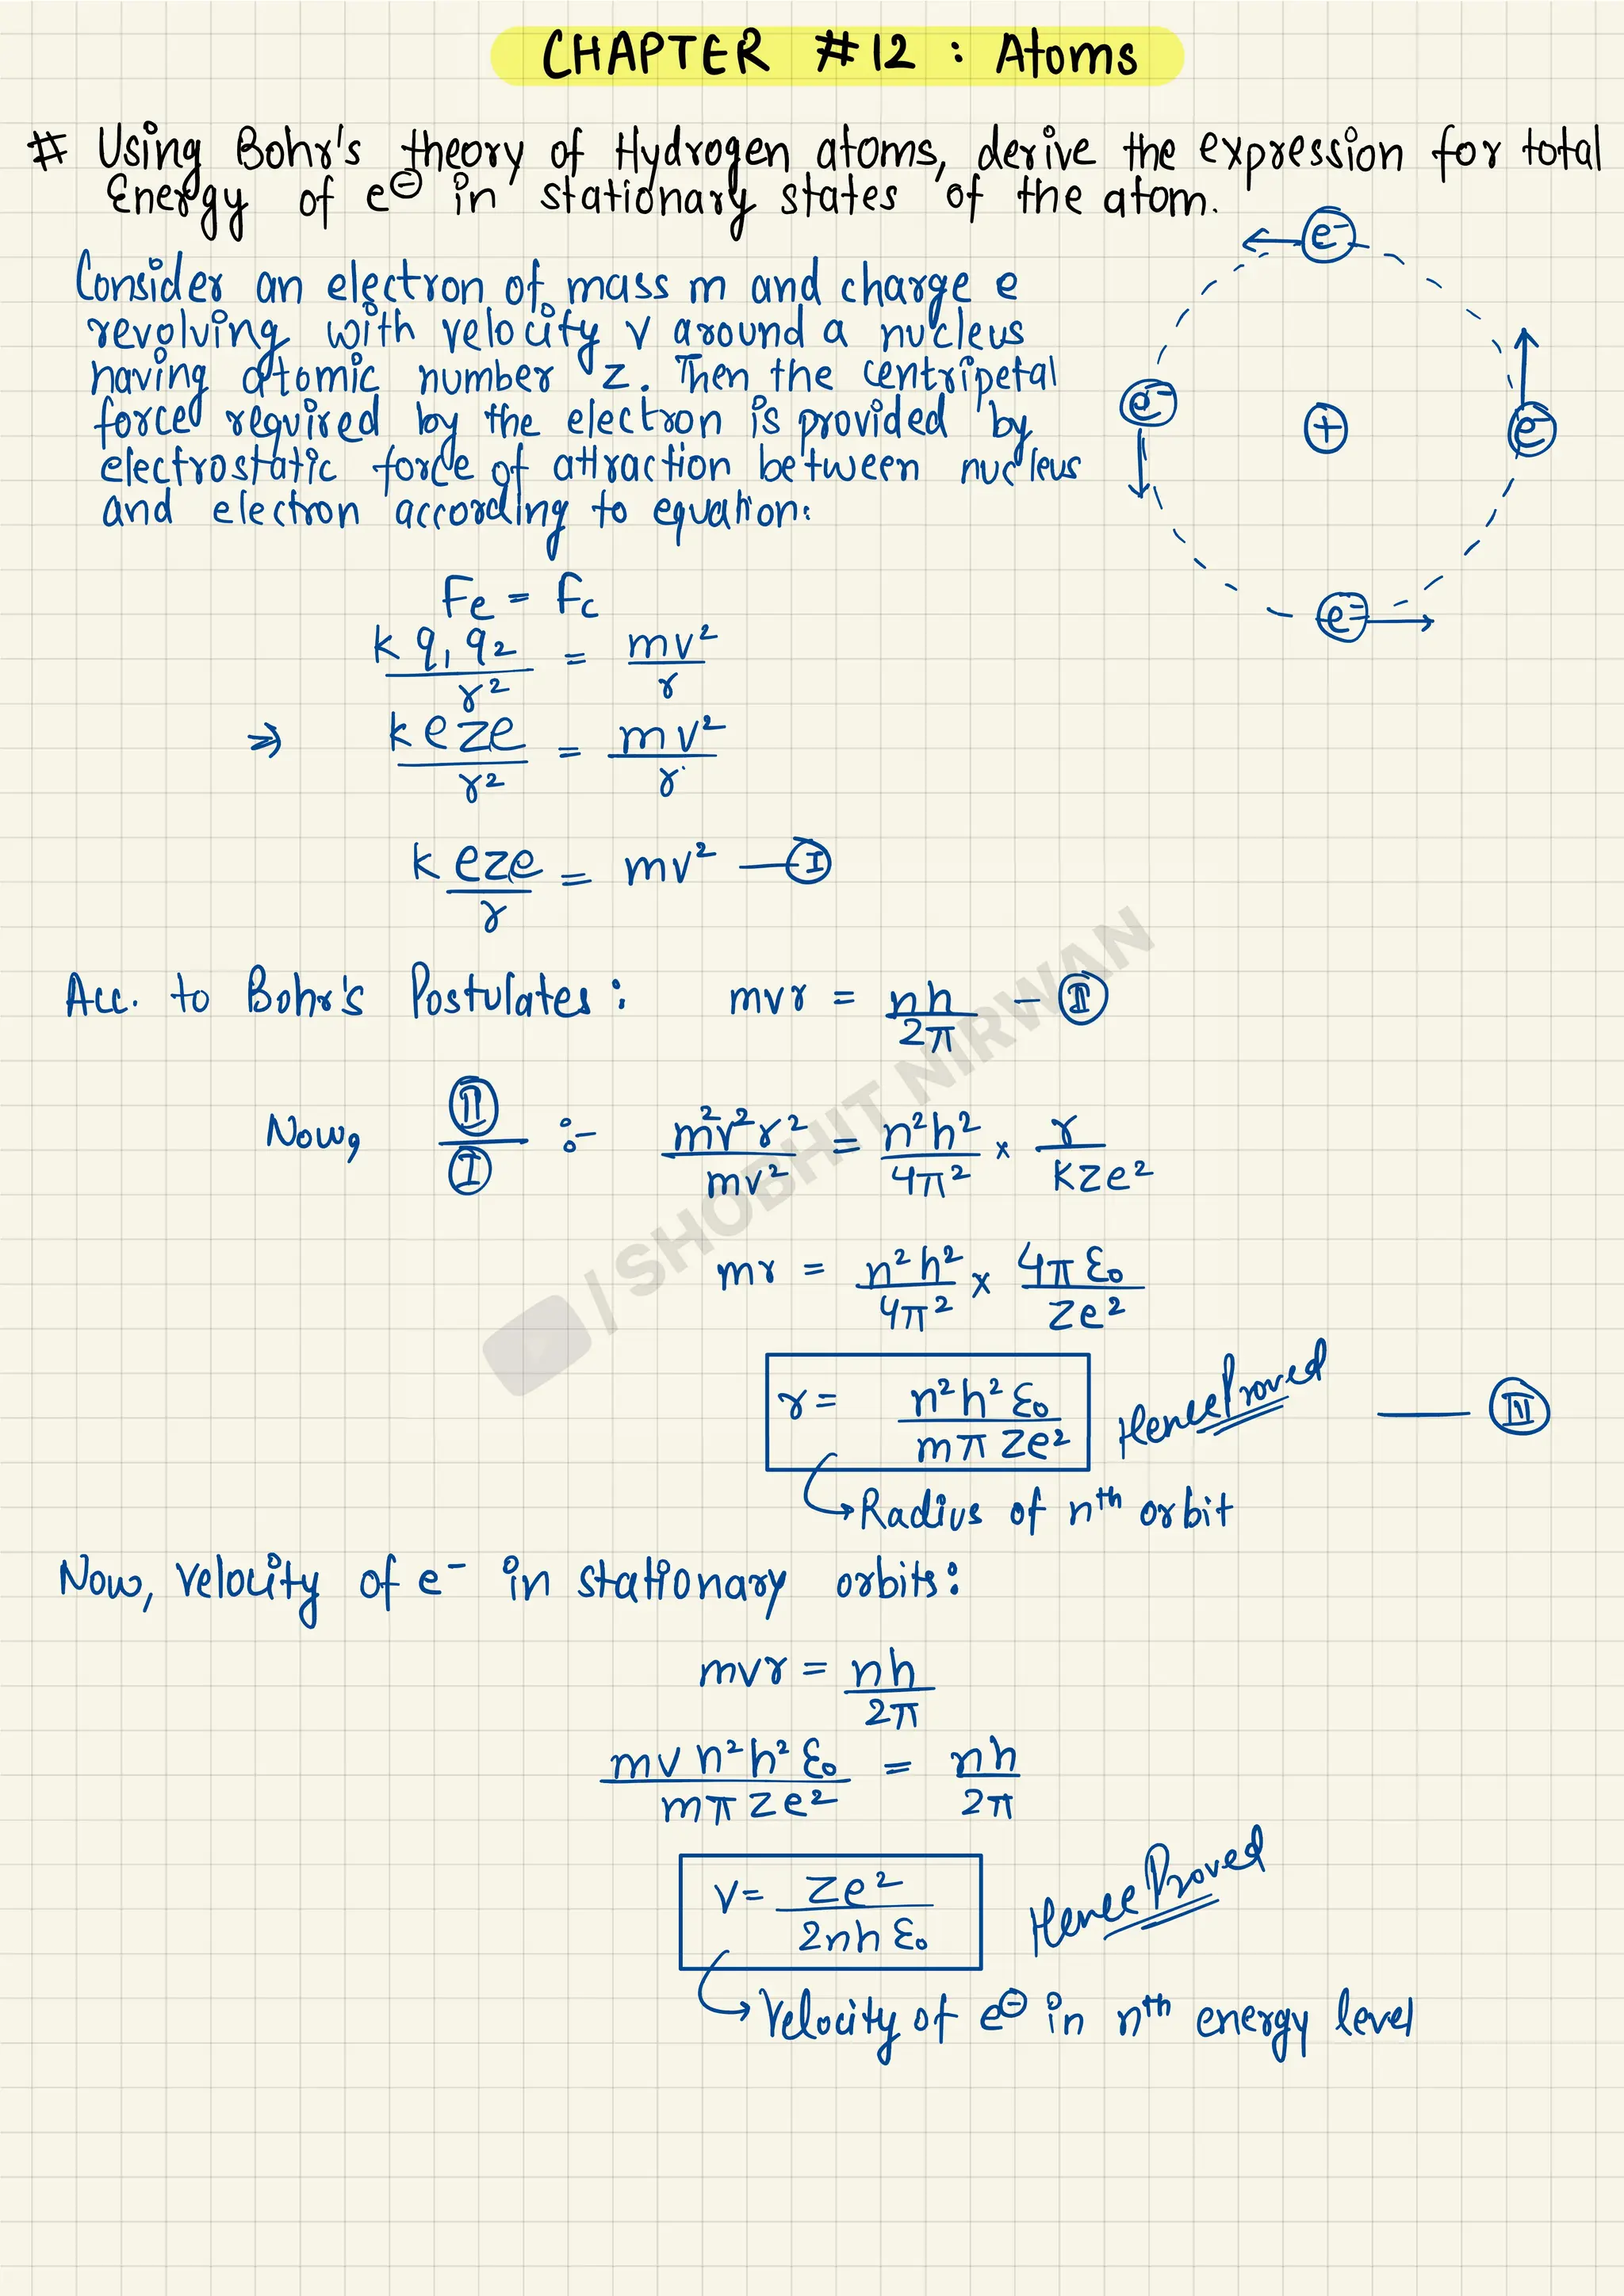 CHAPTER #12 : Atoms
# Using Bohr's theory of Hydrogen atoms, derive the expression for total
Energy of e⊖ in stationary states of the atom.
Consider an electron of mass m and charge e
revolving with velocity v around a nucleus
having atomic number z. Then the centripetal
force required by the electron is provided by
electrostatic force of attraction between nucleus
and electron according to equation:
e⁻
e⁻ + e⁻
e⁻
Fe = Fc
k q₁ q₂ / r² = mv² / r
⇒ k e ze / r² = mv² / r
k eze / r = mv² — Ⓘ
Acc. to Bohr's Postulates: mvr = nh / 2π — Ⅱ
Now, Ⅱ / Ⅰ :- m²v²r² / mv² = n²h² / 4π² × r / kze²
mr = n²h² / 4π² × 4πε₀ / Ze²
r = n²h²ε₀ / mπZe² Hence Proved — Ⅲ
Radius of nᵗʰ orbit
Now, Velocity of e⁻ in stationary orbits:
mvr = nh / 2π
mv n²h²ε₀ / mπZe² = nh / 2π
v = Ze² / 2nhε₀ Hence Proved
Velocity of e⊖ in nᵗʰ energy level
/ SHOBHIT NIRWAN